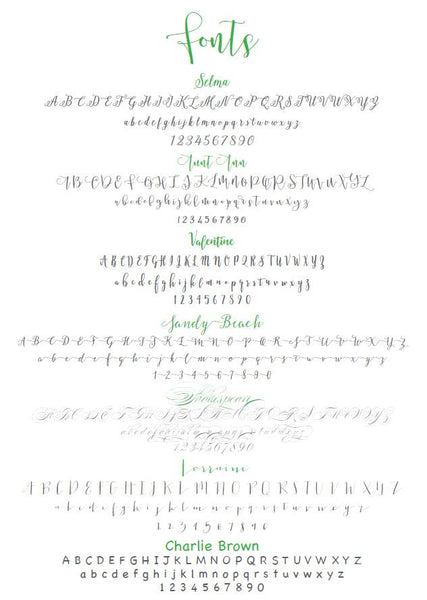 fonts
Selma
ABCDEFGHIJKLMNOPQRSTUVWXYZ
abcdefghijklmnopqrstuvwxyz
1234567890
Aunt Ann
ABCDEFGHIJKLMNOPQRSTUVWXYZ
abcdefghijklmnopqrstuvwxyz
1234567890
Valentine
ABCDEFGHIJKLMNOPQRSTUVWXYZ
abcdefghijklmnopqrstuvwxyz
1234567890
Sandy Beach
ABCDEFGHIJKLMNOPQRSTUVWXYZ
abcdefghijklmnopqrstuvwxyz
1234567890
Shakespeare
ABCDEFGHIJKLMNOPQRSTUVWXYZ
abcdefghijklmnopqrstuvwxyz
1234567890
Lorraine
ABCDEFGHIJKLMNOPQRSTUVWXYZ
abcdefghijklmnopqrstuvwxyz
1234567890
Charlie Brown
ABCDEFGHIJKLMNOPQRSTUVWXYZ
abcdefghijklmnopqrstuvwxyz
1234567890